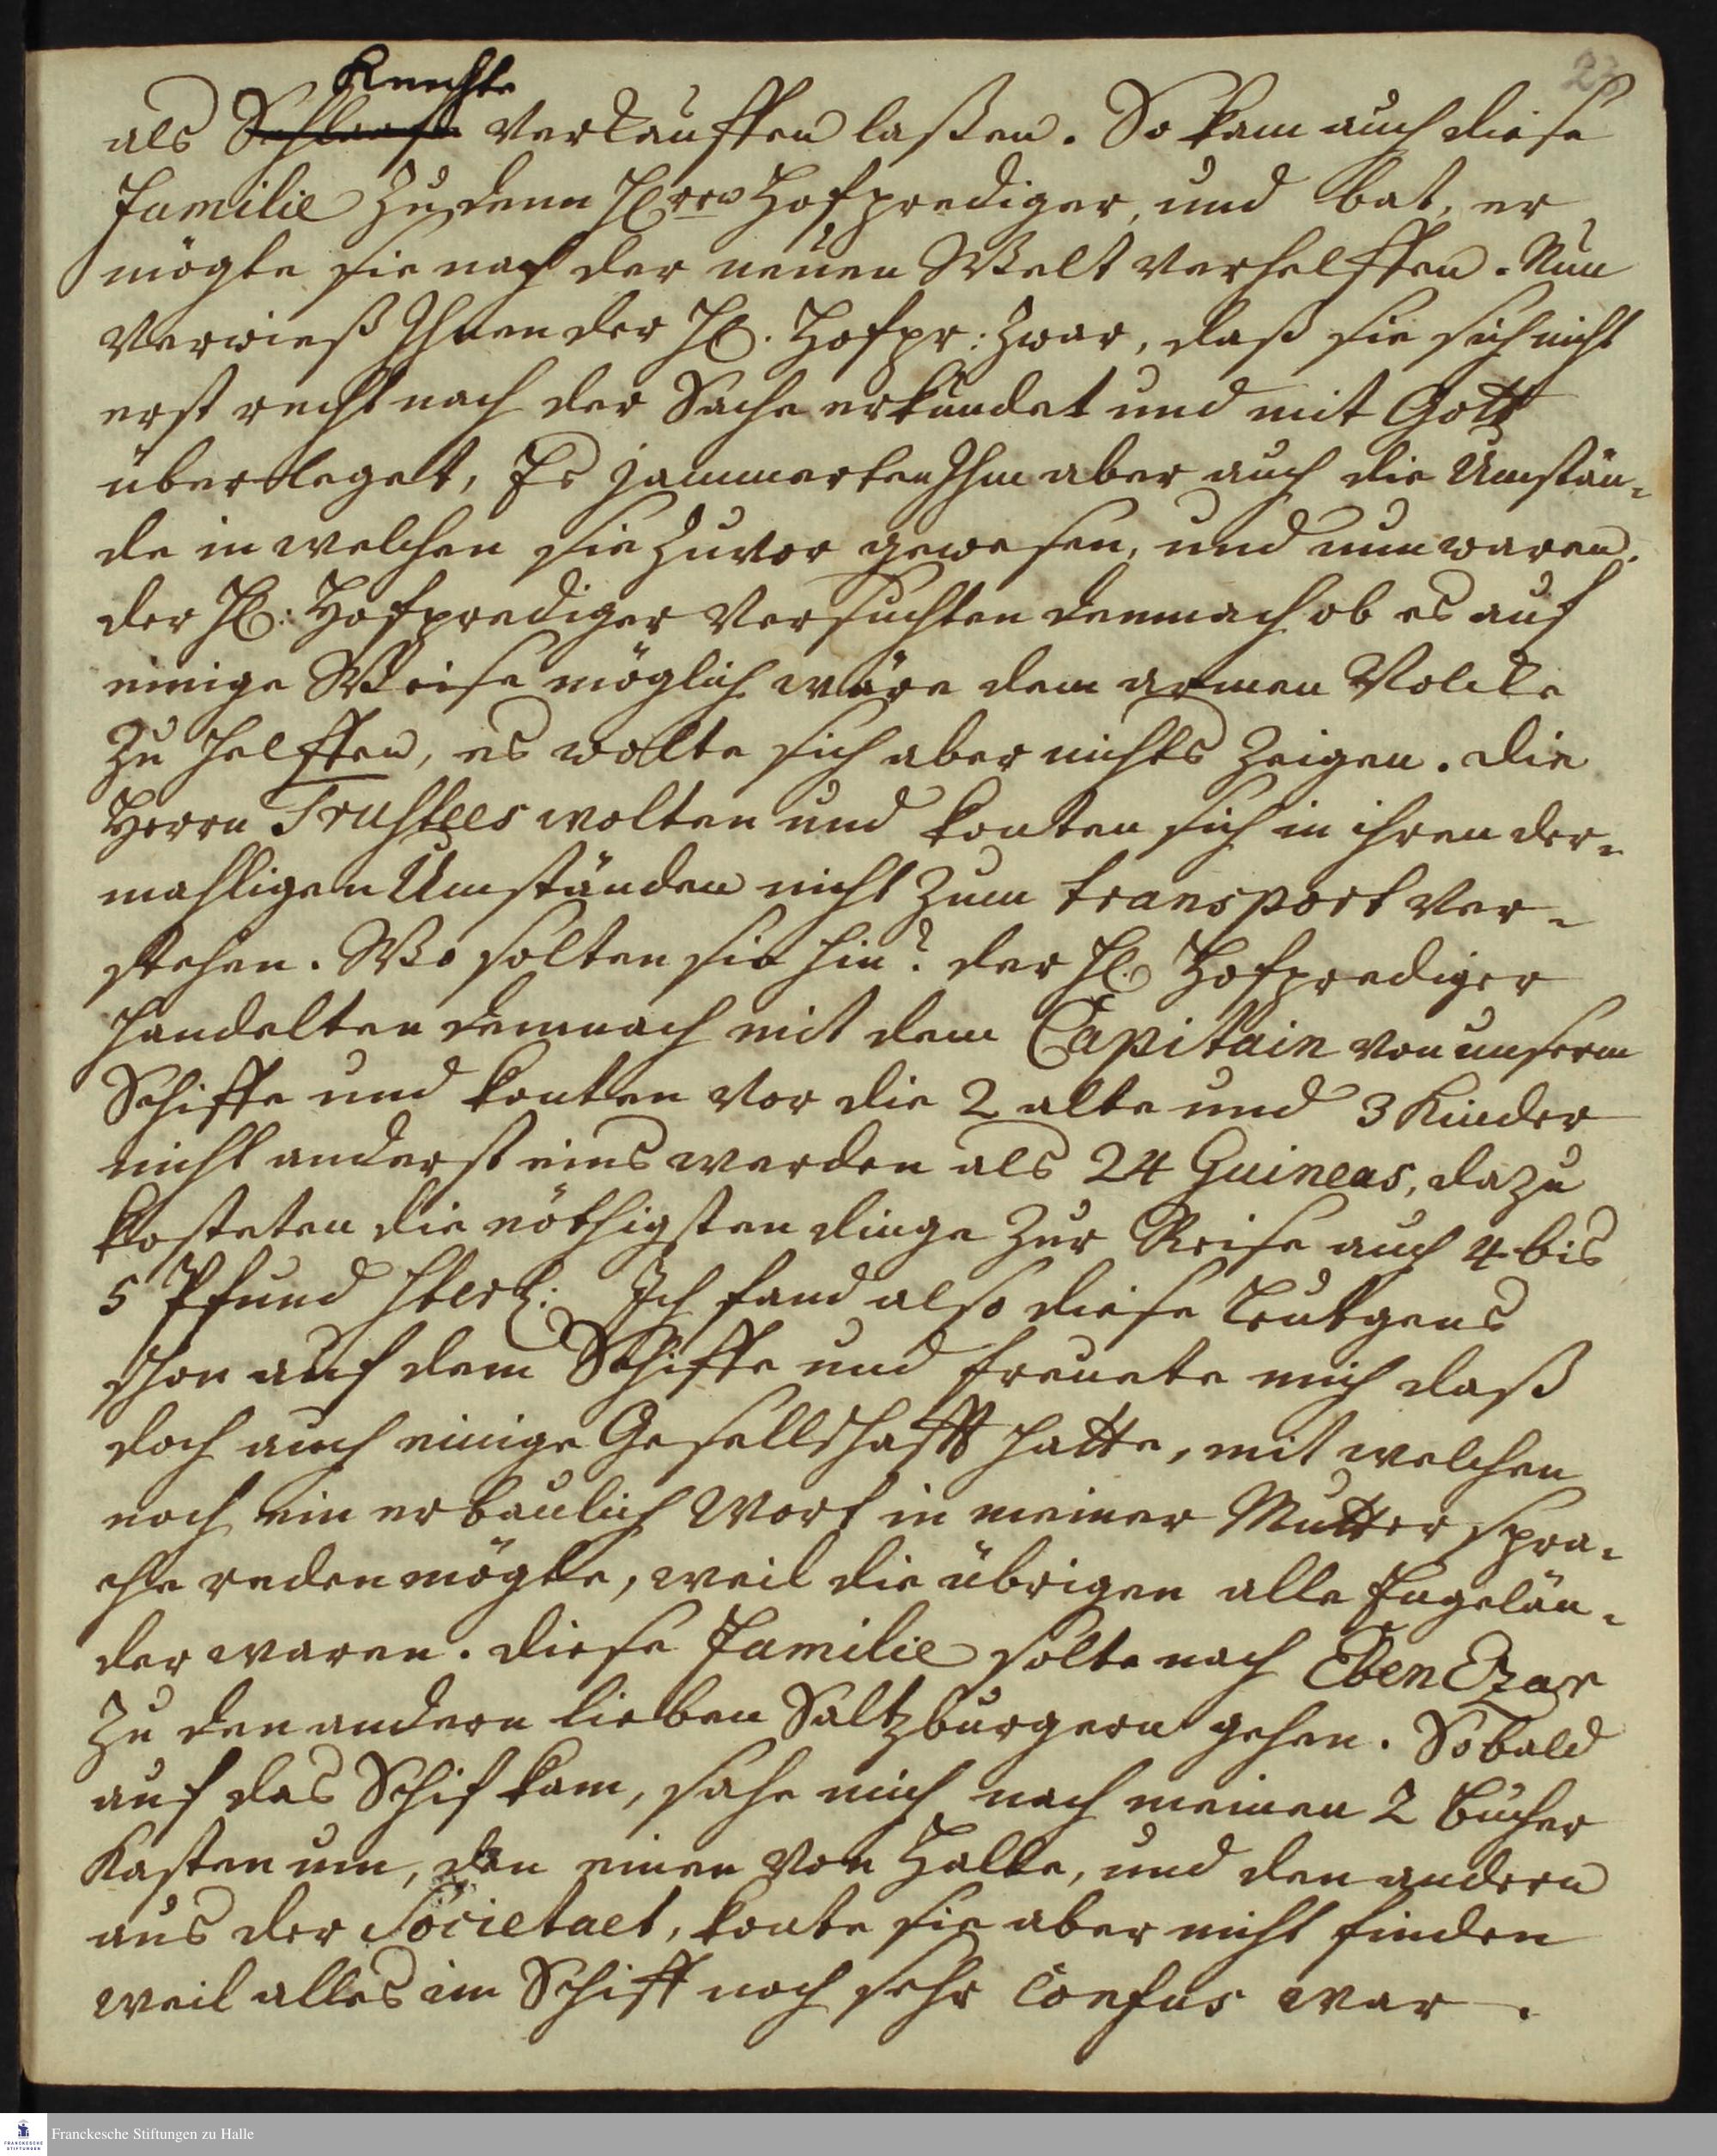 23
Knechte
als Schlaafe verkauffen laßen. So kam auch diese
Familie zu denn Herrn Hofprediger, und bat, er
mögte sie nach der neuen Welt verhelffen. Nun
verwieß Ihnen der H. Hofpr: zwar, daß sie sich nicht
erst recht nach der Sache erkundet und mit Gott
überleget, Es jammerten Ihm aber auch die Umstän-
de in welchen sie zuvor gewesen, und nun waren.
der H: Hofprediger versuchten demnach ob es auf
einige Weise möglich wäre dem armen Volcke
zu helffen, es wolte sich aber nichts zeigen. die
Herrn Trustees wolten und konten sich in ihren der-
mahligen Umständen nicht zum transport ver-
stehen. Wo solten sie hin? der H. Hofprediger
handelten demnach mit dem Capitain von unserm
Schiffe und konten vor die 2 alte und 3 Kinder
nicht anderst eins werden als 24 Guineas, dazu
kosteten die nöthigsten dinge zur Reise auch 4 bis
5 Pfund Sterl: Ich fand also diese Leutgens
schon auf dem Schiffe und freuete mich daß
doch auch einige Gesellschafft hatte, mit welchen
noch ein erbaulich Wort in meiner Mutter spra-
che reden mögte, weil die übrigen alle Engelän-
der waren. diese Familie solte nach Eben Ezar
zu den andern lieben Saltzburgern gehen. Sobald
auf das Schif kam, sahe mich nach meinen 2 Bücher
Kasten um, den einen von Halle, und den andern
aus der Societaet, konte sie aber nicht finden
weil alles im Schiff noch sehr confus war.
Franckesche Stiftungen zu Halle